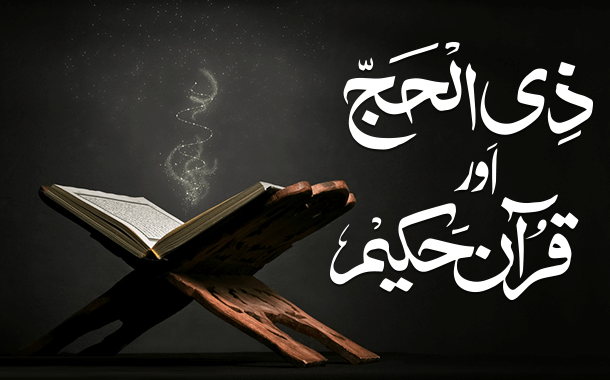 ذِی الْحَجّ
اَور
قُرْآن حَکیْم